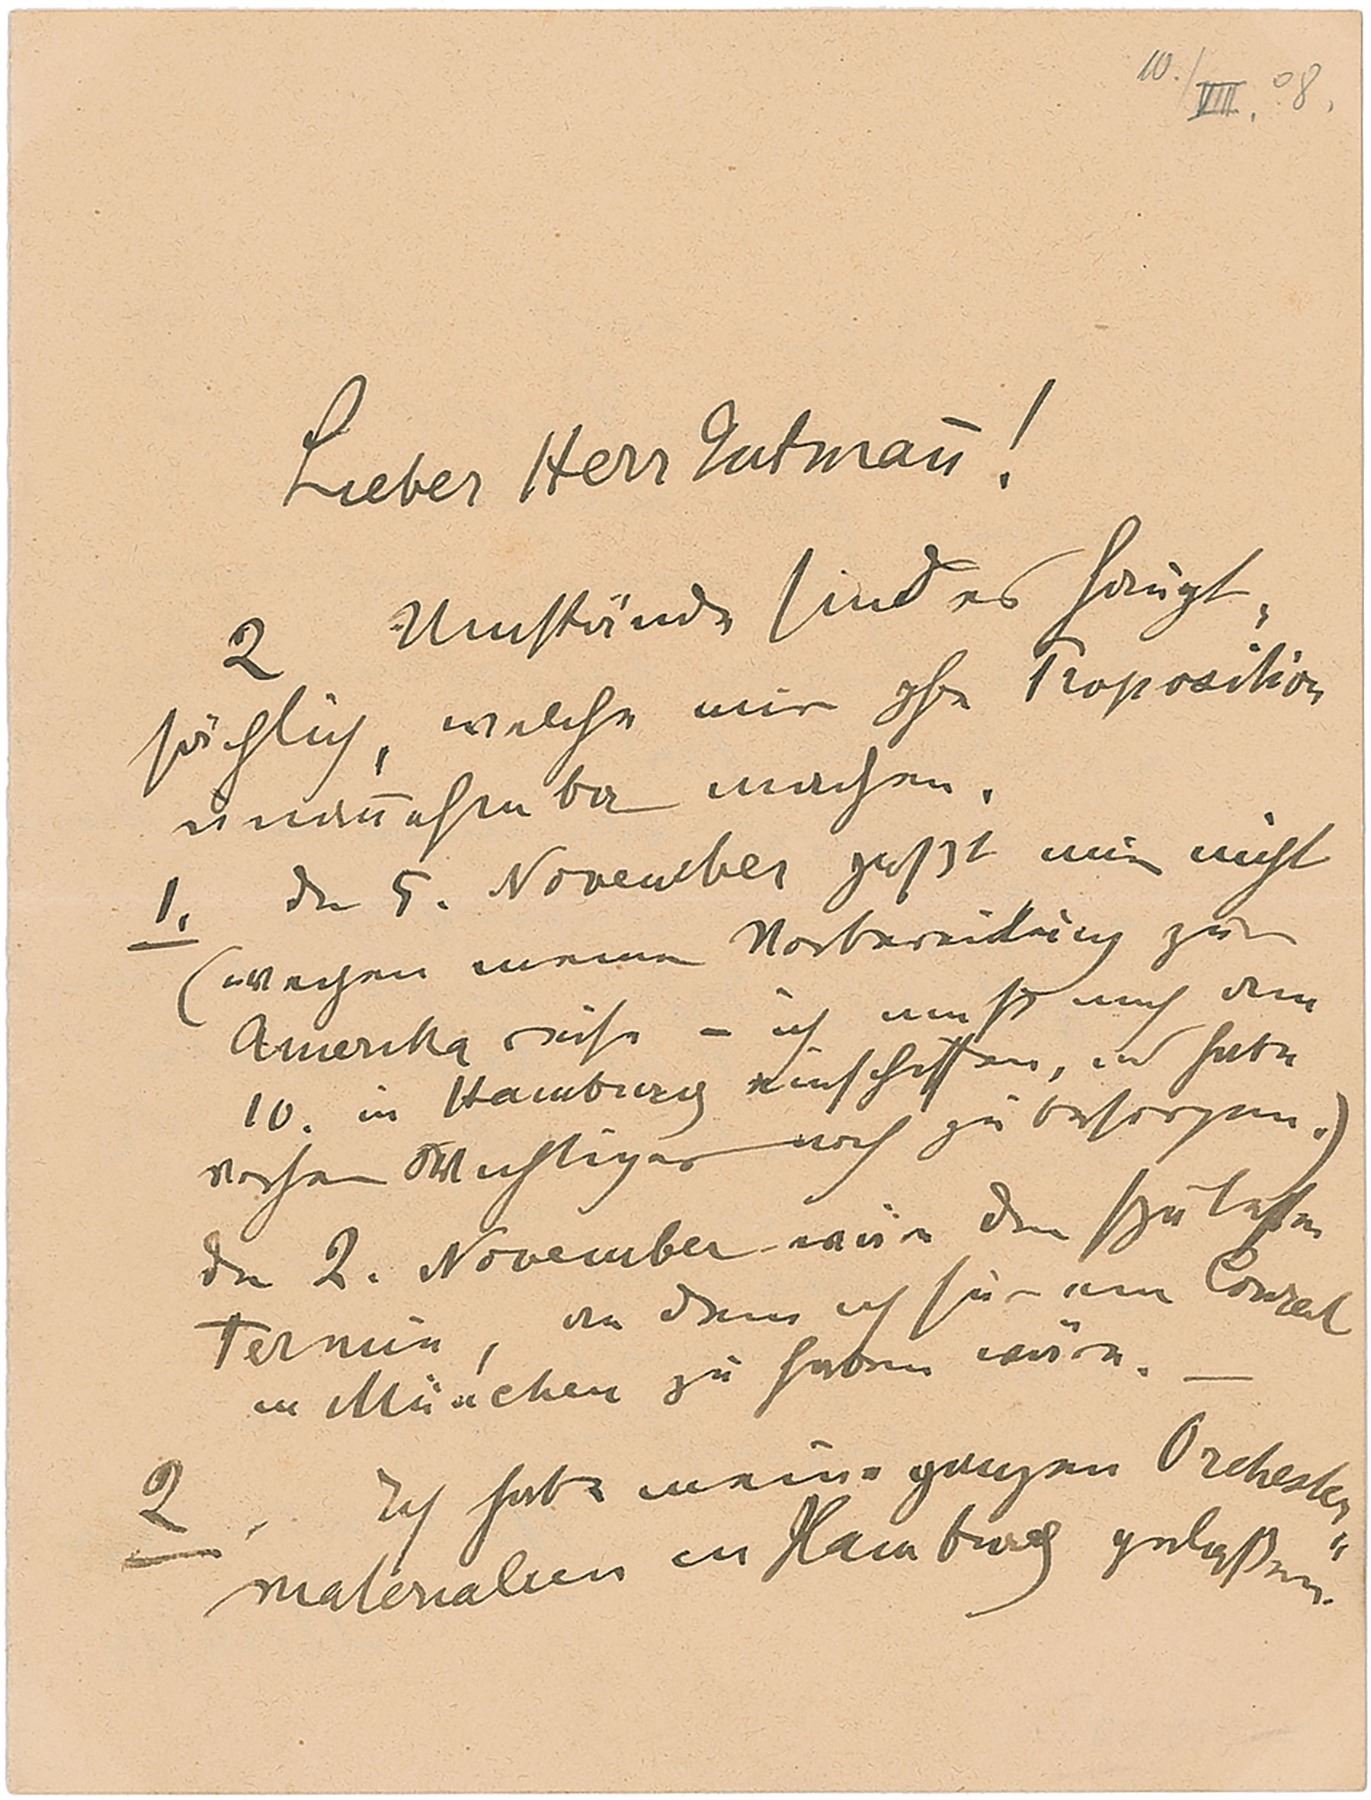 10./VIII. 08.
Lieber Herr Gutmañ!
2 Umstände sind es haupt-
sächlich, welche mir Ihre Proposition
unañehmbar machen.
1. Der 5. November paßt mir nicht
(wegen meiner Vorbereitung zur
Amerika reise – ich muß mich am
10. in Hamburg einschiffen, und habe
vorher Wichtiges noch zu besorgen.)
der 2. November wäre der späteste
Termin, an dem ich für ein Conzert
in München zu haben wäre. —
2. Ich habe meine ganzen Orchester-
materialien in Hamburg gelaßen.